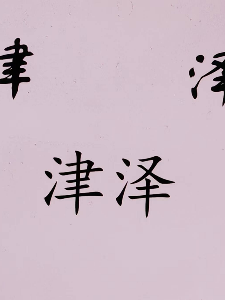 津 泽
津泽